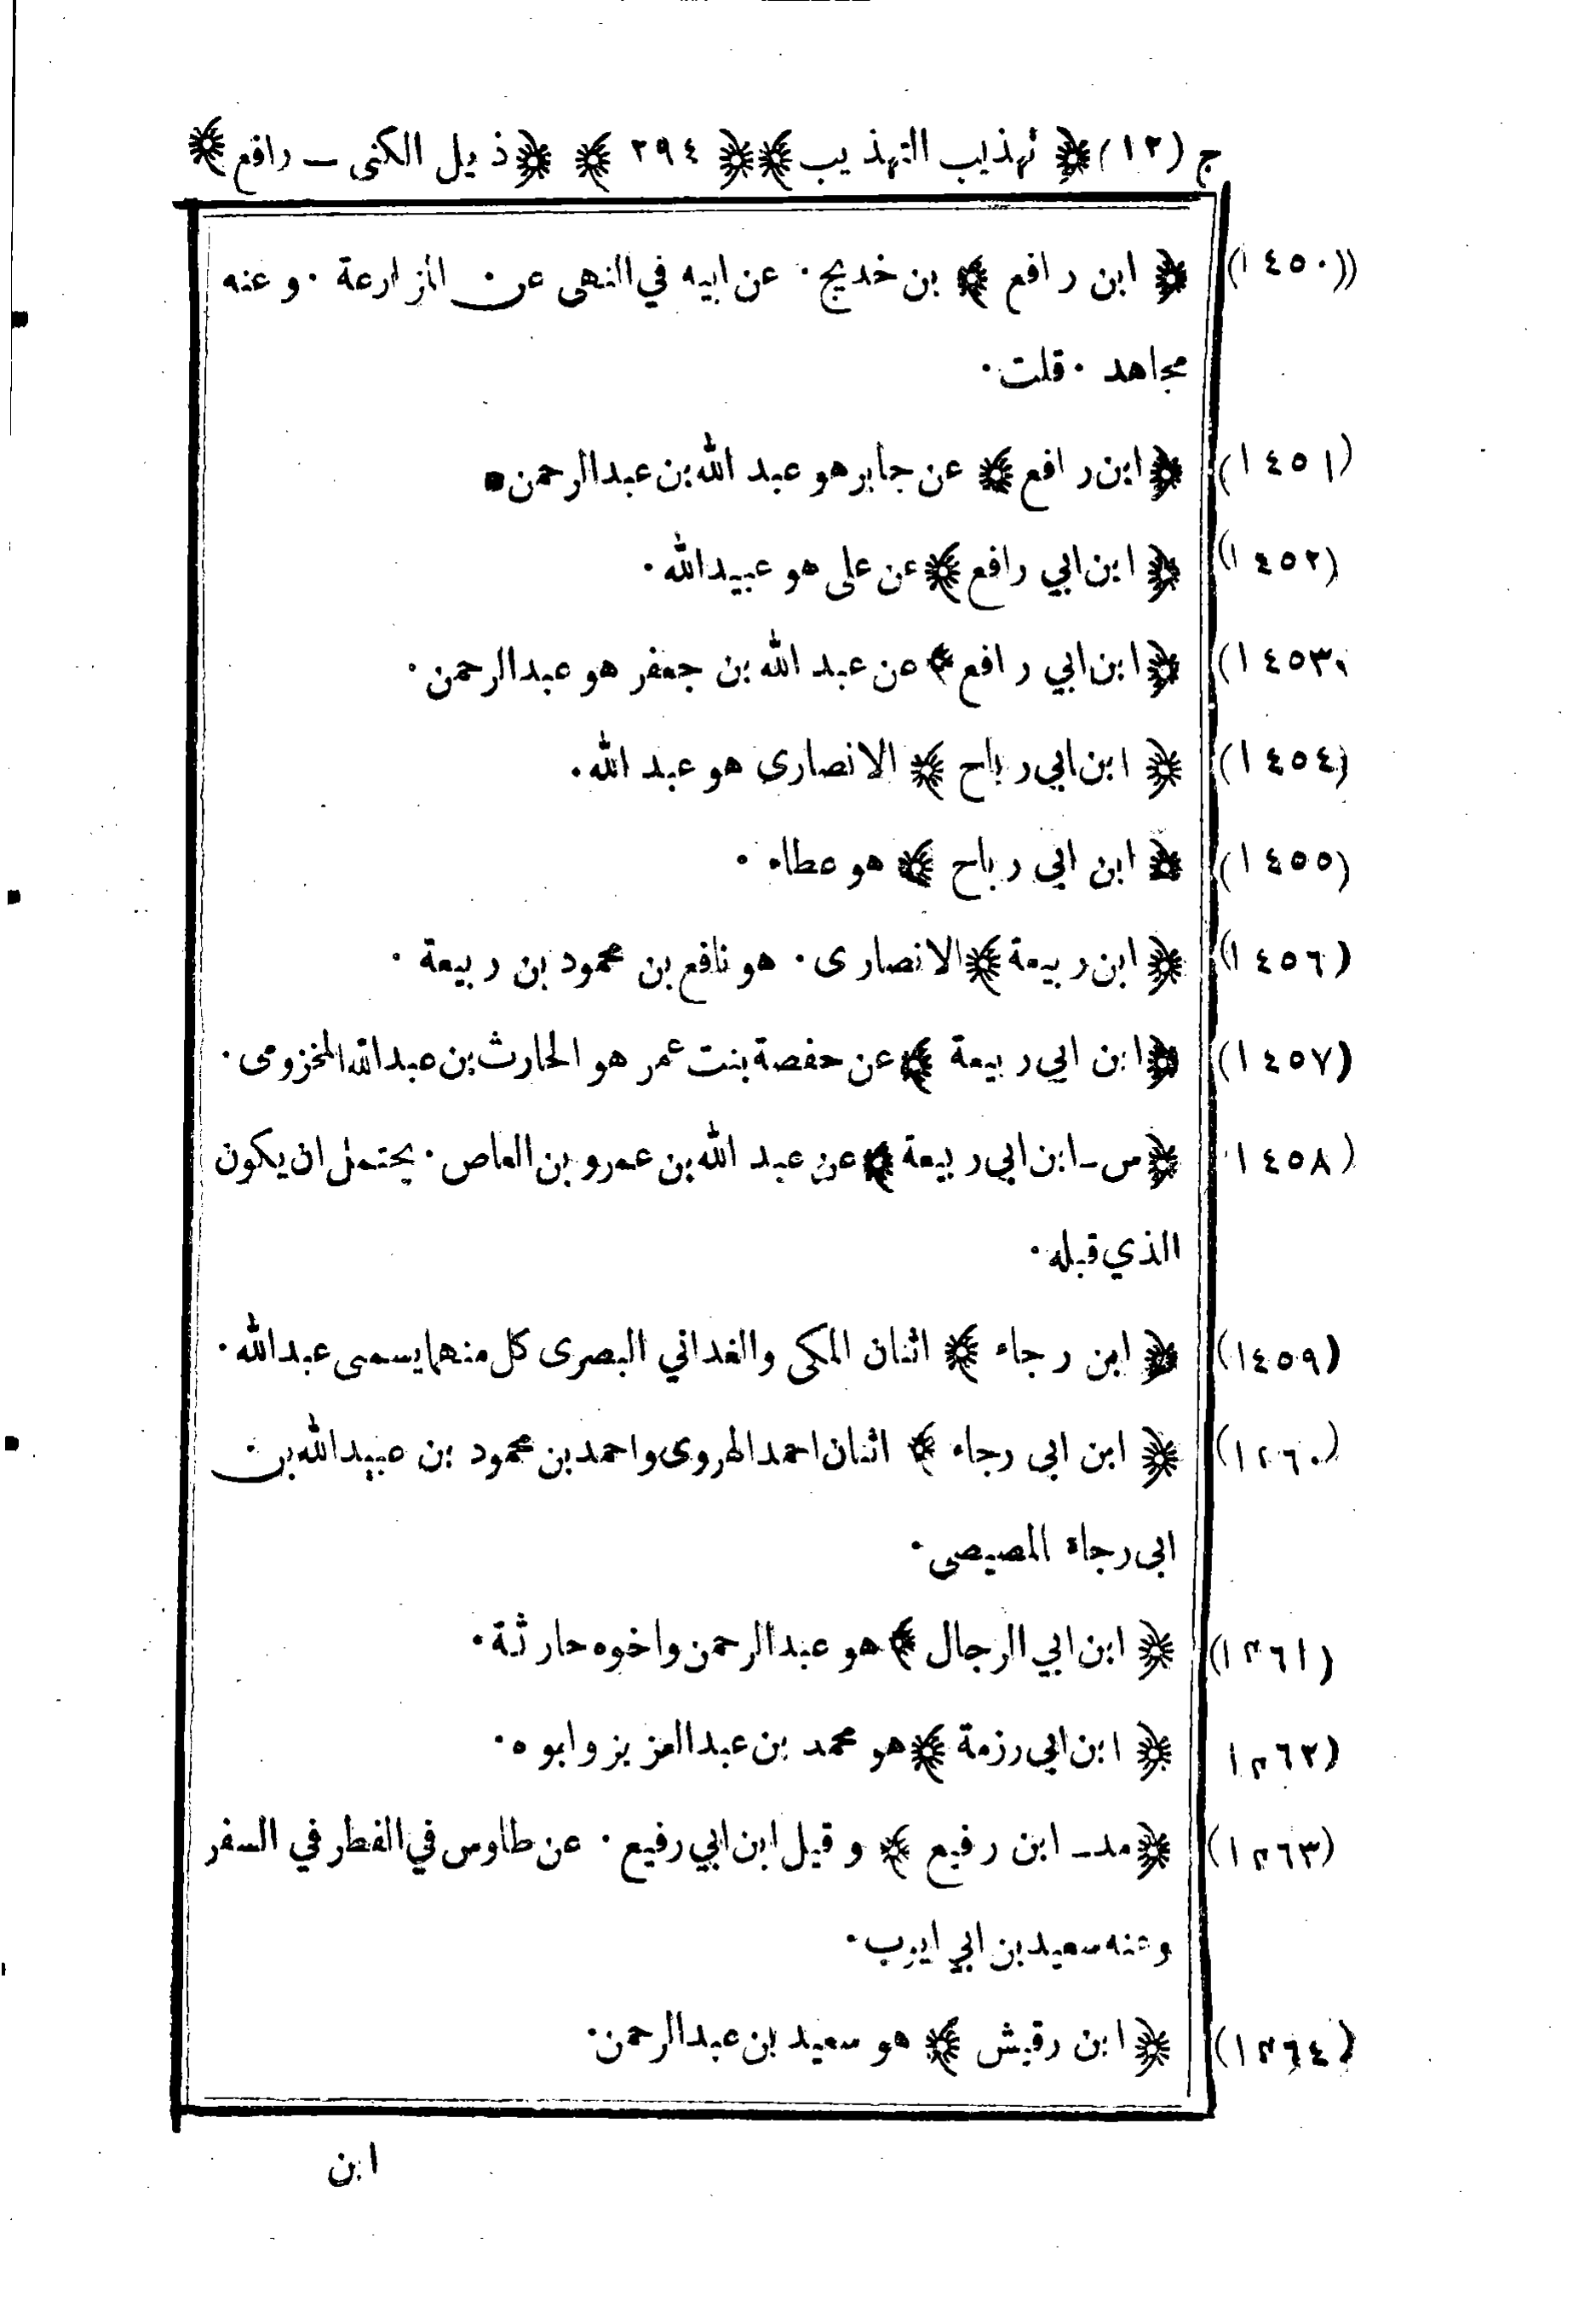 ج (١٢) ﴿ تهذيب التهذيب ﴾ ﴿ ٢٩٤ ﴾ ﴿ ذيل الكنى – رافع ﴾
(١٤٥٠) ﴿ ابن رافع ﴾ بن خديج · عن ابيه في النهى عن المزارعة · وعنه
مجاهد · قلت ·
(١٤٥١) ﴿ ابن رافع ﴾ عن جابر هو عبد الله بن عبد الرحمن ·
(١٤٥٢) ﴿ ابن ابي رافع ﴾ عن على هو عبيد الله ·
(١٤٥٣) ﴿ ابن ابي رافع ﴾ عن عبد الله بن جعفر هو عبد الرحمن ·
(١٤٥٤) ﴿ ابن ابي رباح ﴾ الانصارى هو عبد الله ·
(١٤٥٥) ﴿ ابن ابي رباح ﴾ هو عطاء ·
(١٤٥٦) ﴿ ابن ربيعة ﴾ الانصارى · هو نافع بن محمود بن ربيعة ·
(١٤٥٧) ﴿ ابن ابي ربيعة ﴾ عن حفصة بنت عمر هو الحارث بن عبد الله المخزومى ·
(١٤٥٨) ﴿ س – ابن ابي ربيعة ﴾ عن عبد الله بن عمرو بن العاص · يحتمل ان يكون
الذي قبله ·
(١٤٥٩) ﴿ ابن رجاء ﴾ اثنان المكى والغداني البصرى كل منهما يسمى عبد الله ·
(١٤٦٠) ﴿ ابن ابى رجاء ﴾ اثنان احمد الهروى واحمد بن محمود بن عبيد الله بن
ابى رجاء المصيصى ·
(١٤٦١) ﴿ ابن ابي الرجال ﴾ هو عبد الرحمن واخوه حارثة ·
(١٤٦٢) ﴿ ابن ابي رزمة ﴾ هو محمد بن عبد العزيز وابوه ·
(١٤٦٣) ﴿ مد – ابن رفيع ﴾ وقيل ابن ابي رفيع · عن طاوس في الفطر في السفر
وعنه سعيد بن ابي ايوب ·
(١٤٦٤) ﴿ ابن رقيش ﴾ هو سعيد بن عبد الرحمن ·
ابن